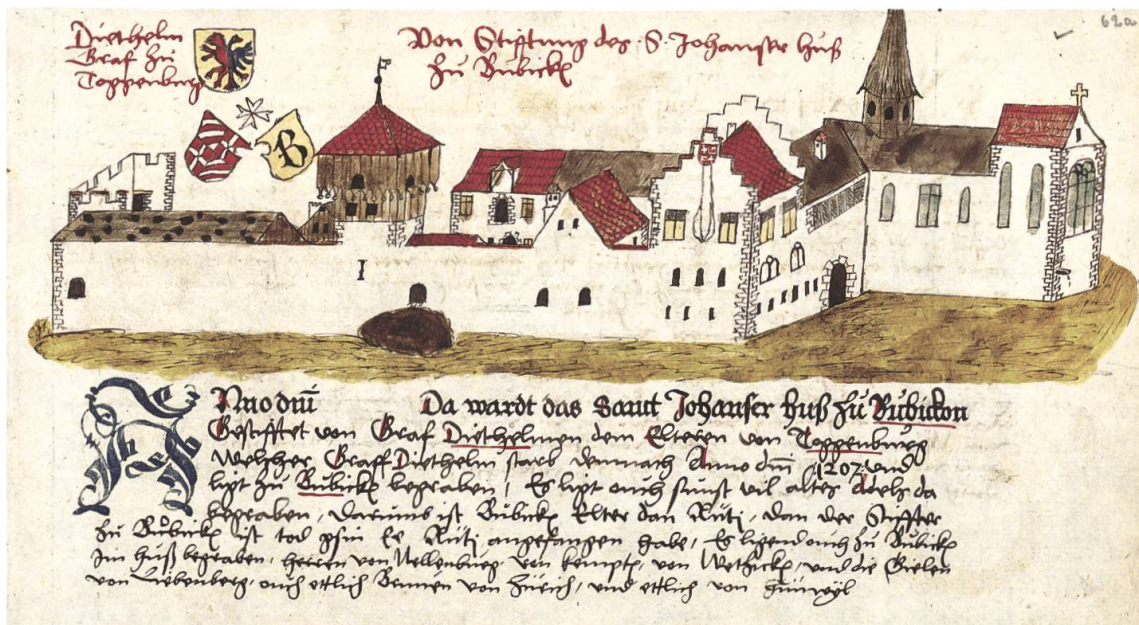 62a
Diethelm
Graf zu
Toggenburg
Von Stifftung des S. Johanser huß
zu Bubicken
B
I
Anno dm̄ Da wardt das Sant Johanser huß zu Bubickon
Gestifftet von Graf Diethelmen dem Elteren von Toggenburg
welcher Graff Diethelm starb demnach Anno dm̄ 1207 und
ligt zu Bubicken begraben, Es ligt ouch sunst vil altes Adels da
begraben, darumb ist Bubicken Elter dan Rüti, dan der Stiffter
zu Bubicken ist tod gsin Ee Rüti angefangen habe, Es ligend ouch zu Bubicken
im huß begraben, herren von Nellenburg, von kempten, von Wetzicken, und die Gielen
von Liebenberg, ouch ettlich Brunen von Zürich, und ettlich von Hünwyl